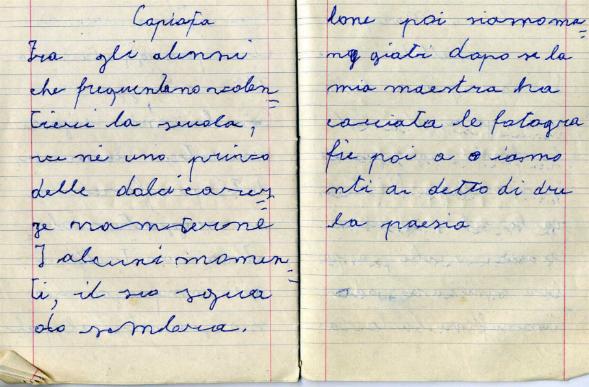 Copiata
Fra gli alunni
che frequentano volen=
tieri la scuola,
ve ne uno privo
delle dolci carez=
ze materne
I alcuni momen=
ti, il suo sgua
do sembava.
lone poi siamo ma=
ng giati dapo se la
mia maestra ha
cacciata le fotogra
fie poi a
detto di
la paesia